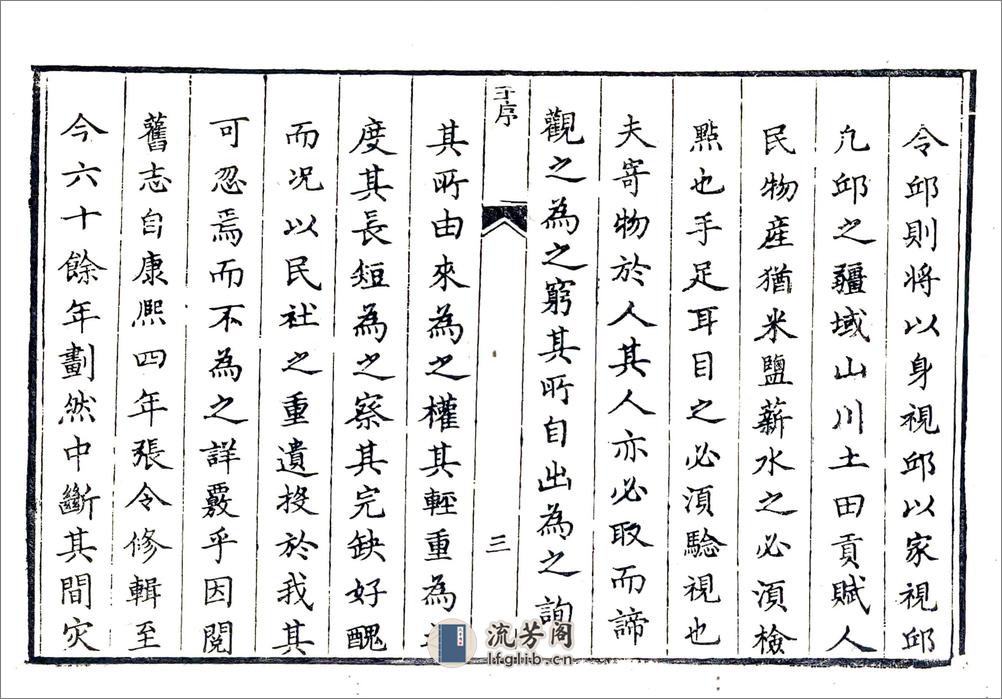 令邱則將以身視邱以家視邱
凢邱之疆域山川土田貢賦人
民物産猶米鹽薪水之必湏檢
㸃也手足耳目之必湏驗視也
夫寄物於人其人亦必取而諦
觀之為之窮其所自出為之詢
王序
三
其所由來為之權其輕重為
度其長短為之察其完缺好醜
而況以民社之重遺投於我其
可忍焉而不為之詳覈乎因閱
舊志自康熈四年張令修輯至
今六十餘年劃然中斷其間灾
流芳阁
lfglib.cn